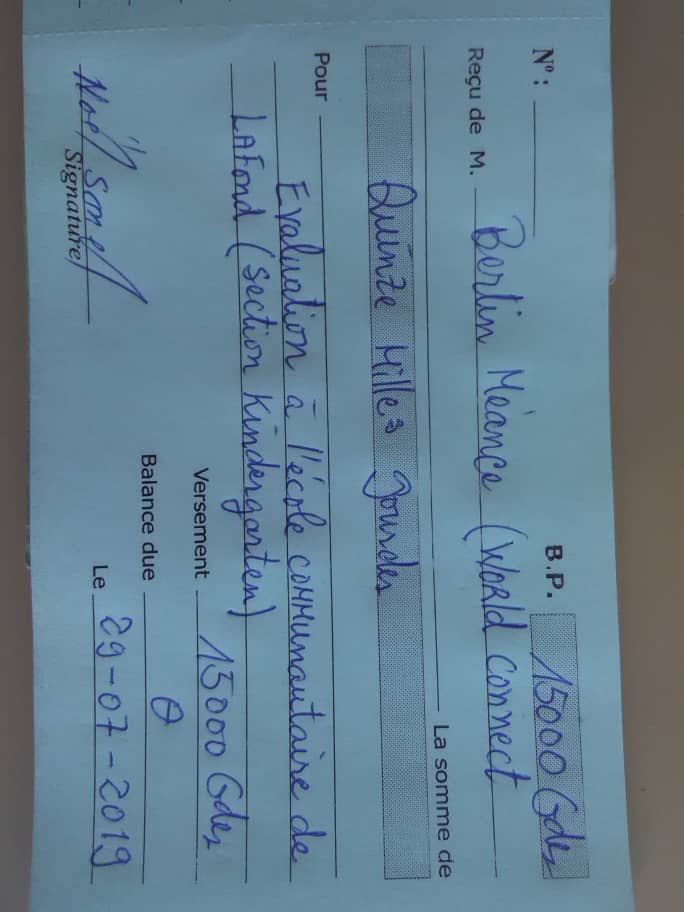 N°: B.P. 15000 Gdes
Reçu de M. Berlin Méance (World Connect
La somme de
Quinze Milles gourdes
Pour
Evaluation à l'école communautaire de
LAFond (section Kindergarten)
Versement 15000 Gdes
Balance due 0
Le 29-07-2019
Signature